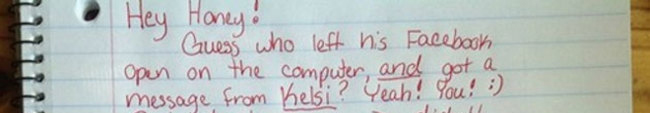 Hey Honey!
Guess who left his Facebook
open on the computer, and got a
message from Kelsi? Yeah! You! :)